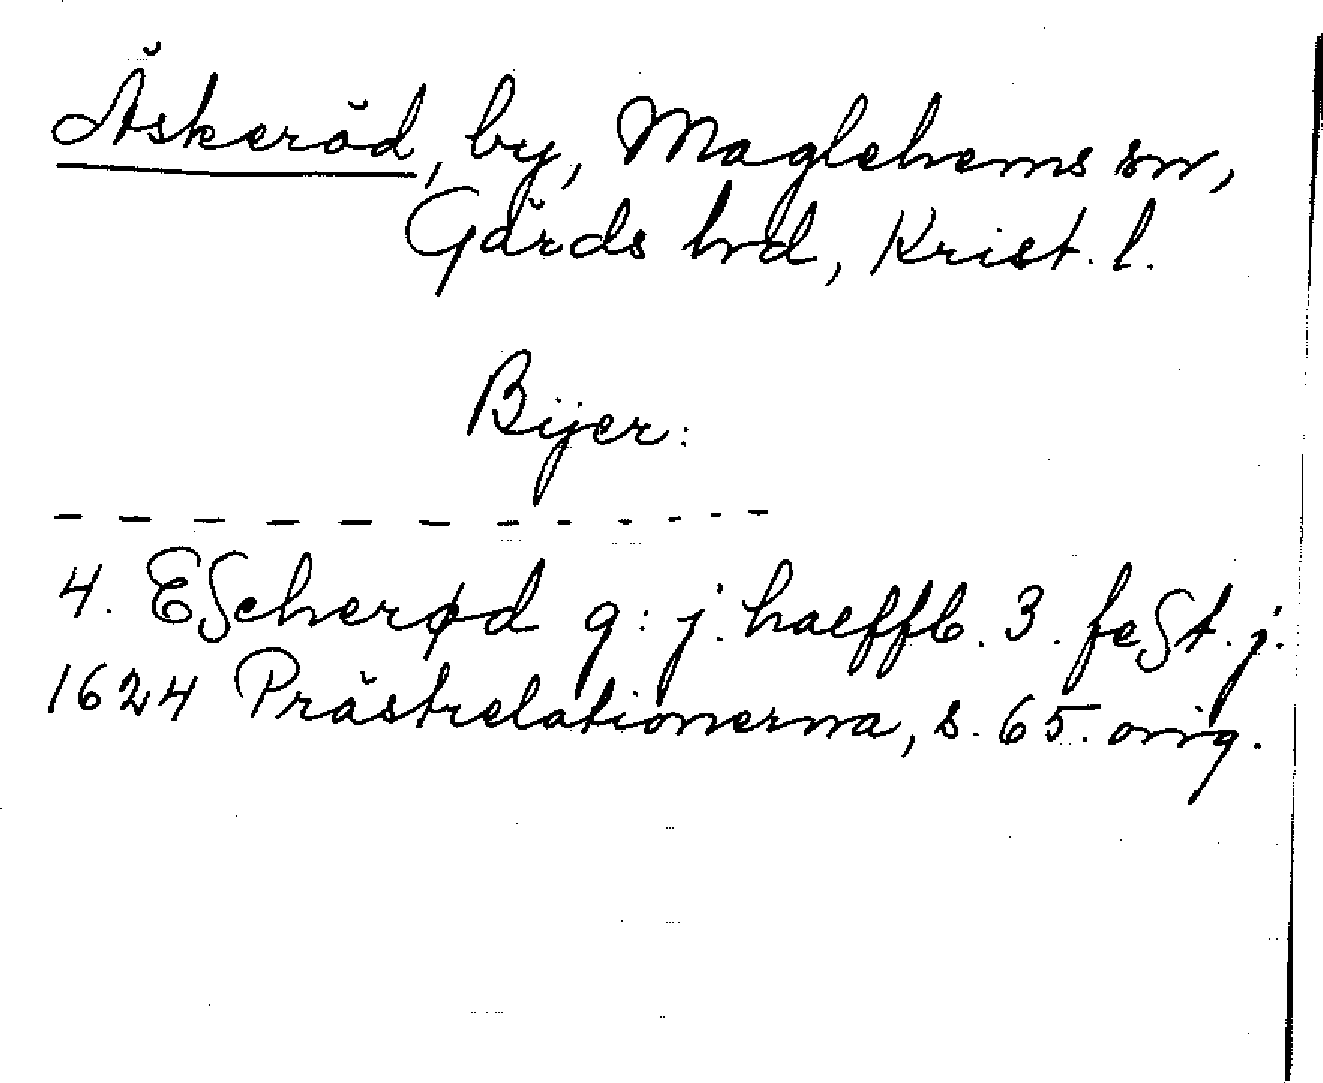 Äskeröd, by, Maglehems sn,
Gärds hd, Krist. l.
Bijer:
- - - - - - - - - - - -
4. Eſcherød g: j. haeffb. 3. feſt. j.
1624 Prästrelationerna, s. 65. orig.